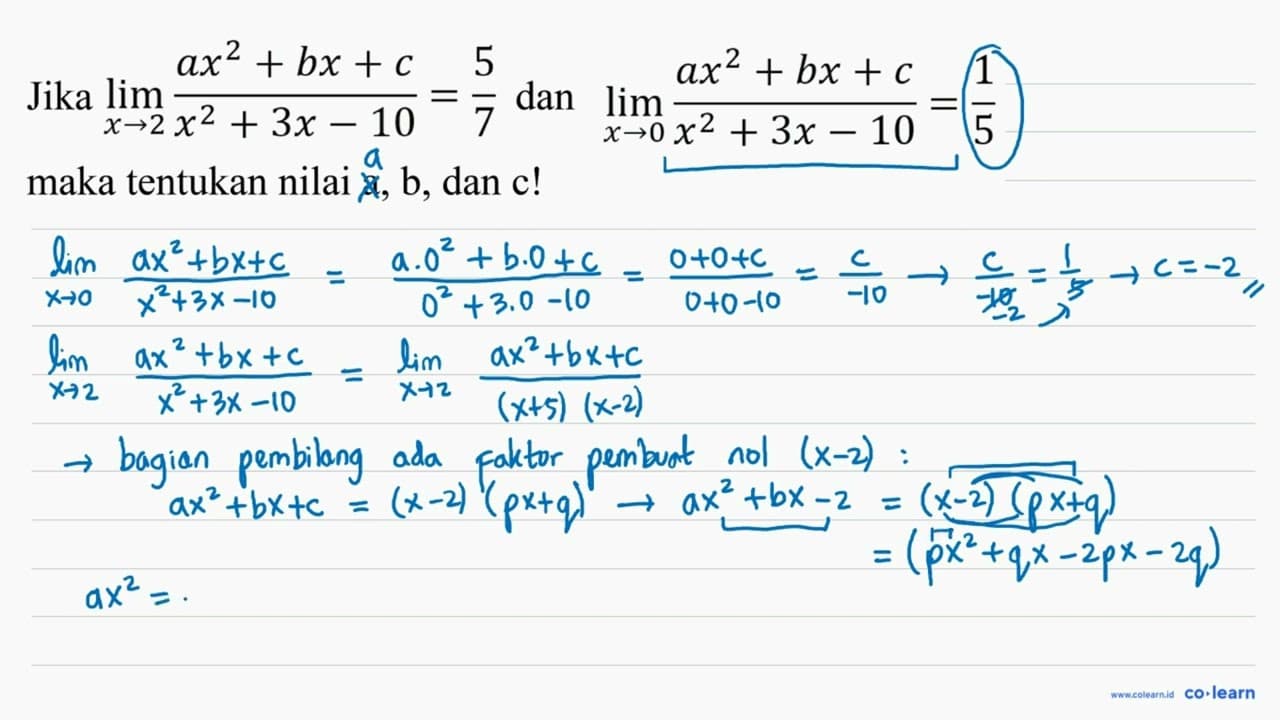 Jika lim x→2 (ax² + bx + c)/(x² + 3x − 10) = 5/7 dan lim x→0 (ax² + bx + c)/(x² + 3x − 10) = 1/5
a
maka tentukan nilai a, b, dan c!
lim x→0 (ax²+bx+c)/(x²+3x−10) = (a.0² + b.0 + c)/(0² + 3.0 −10) = (0+0+c)/(0+0−10) = c/−10 → c/−10 = 1/5 → c = −2
−2
lim x→2 (ax²+bx+c)/(x²+3x−10) = lim x→2 (ax²+bx+c)/((x+5) (x−2))
→ bagian pembilang ada faktor pembuat nol (x−2) :
ax²+bx+c = (x−2) (px+q) → ax²+bx−2 = (x−2) (px+q)
= (px²+qx−2px−2q)
ax² = .
www.colearn.id co·learn